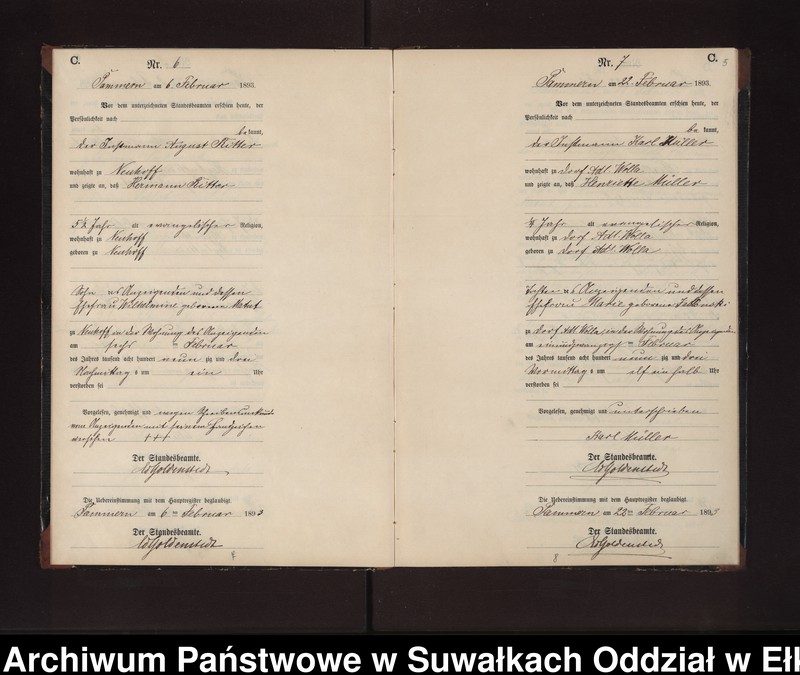 C.
Nr. 6
Tammern am 6. Februar 1893.
Vor dem unterzeichneten Standesbeamten erschien heute, der
Persönlichkeit nach
be kannt,
der Instmann August Ritter
wohnhaft zu Neuhoff
und zeigte an, daß Hermann Ritter
5½ Jahr alt evangelischer Religion,
wohnhaft zu Neuhoff
geboren zu Neuhoff
Sohn des Anzeigenden und dessen
Ehefrau Wilhelmine geborene
zu Neuhoff in der Wohnung des Anzeigenden
am sechs ten Februar
des Jahres tausend acht hundert neun zig und drei
Nachmittag s um ein Uhr
verstorben sei
Vorgelesen, genehmigt und wegen Schreibensunkunde
vom Anzeigenden mit seinem Handzeichen
versehen +++
Der Standesbeamte.
Goldenstedt
Die Uebereinstimmung mit dem Hauptregister beglaubigt.
Tammern am 6ten Februar 1893
Der Standesbeamte.
Goldenstedt
C.
5
Nr. 7
Tammern am 22. Februar 1893.
Vor dem unterzeichneten Standesbeamten erschien heute, der
Persönlichkeit nach
be kannt,
der Instmann Karl Müller
wohnhaft zu Dorf Adl. Wolla
und zeigte an, daß Henriette Müller
Jahr alt evangelischer Religion,
wohnhaft zu Dorf Adl. Wolla
geboren zu Dorf Adl. Wolla
Tochter des Anzeigenden und dessen
Ehefrau Marie geborene
zu Dorf Adl. Wolla in der Wohnung des Anzeigenden
am einundzwanzig ten Februar
des Jahres tausend acht hundert neun zig und drei
Vormittag s um elf ein halb Uhr
verstorben sei
Vorgelesen, genehmigt und unterschrieben
Karl Müller
Der Standesbeamte.
Goldenstedt
Die Uebereinstimmung mit dem Hauptregister beglaubigt.
Tammern am 22ten Februar 1893
Der Standesbeamte.
Goldenstedt
8
Archiwum Państwowe w Suwałkach Oddział w Ełk